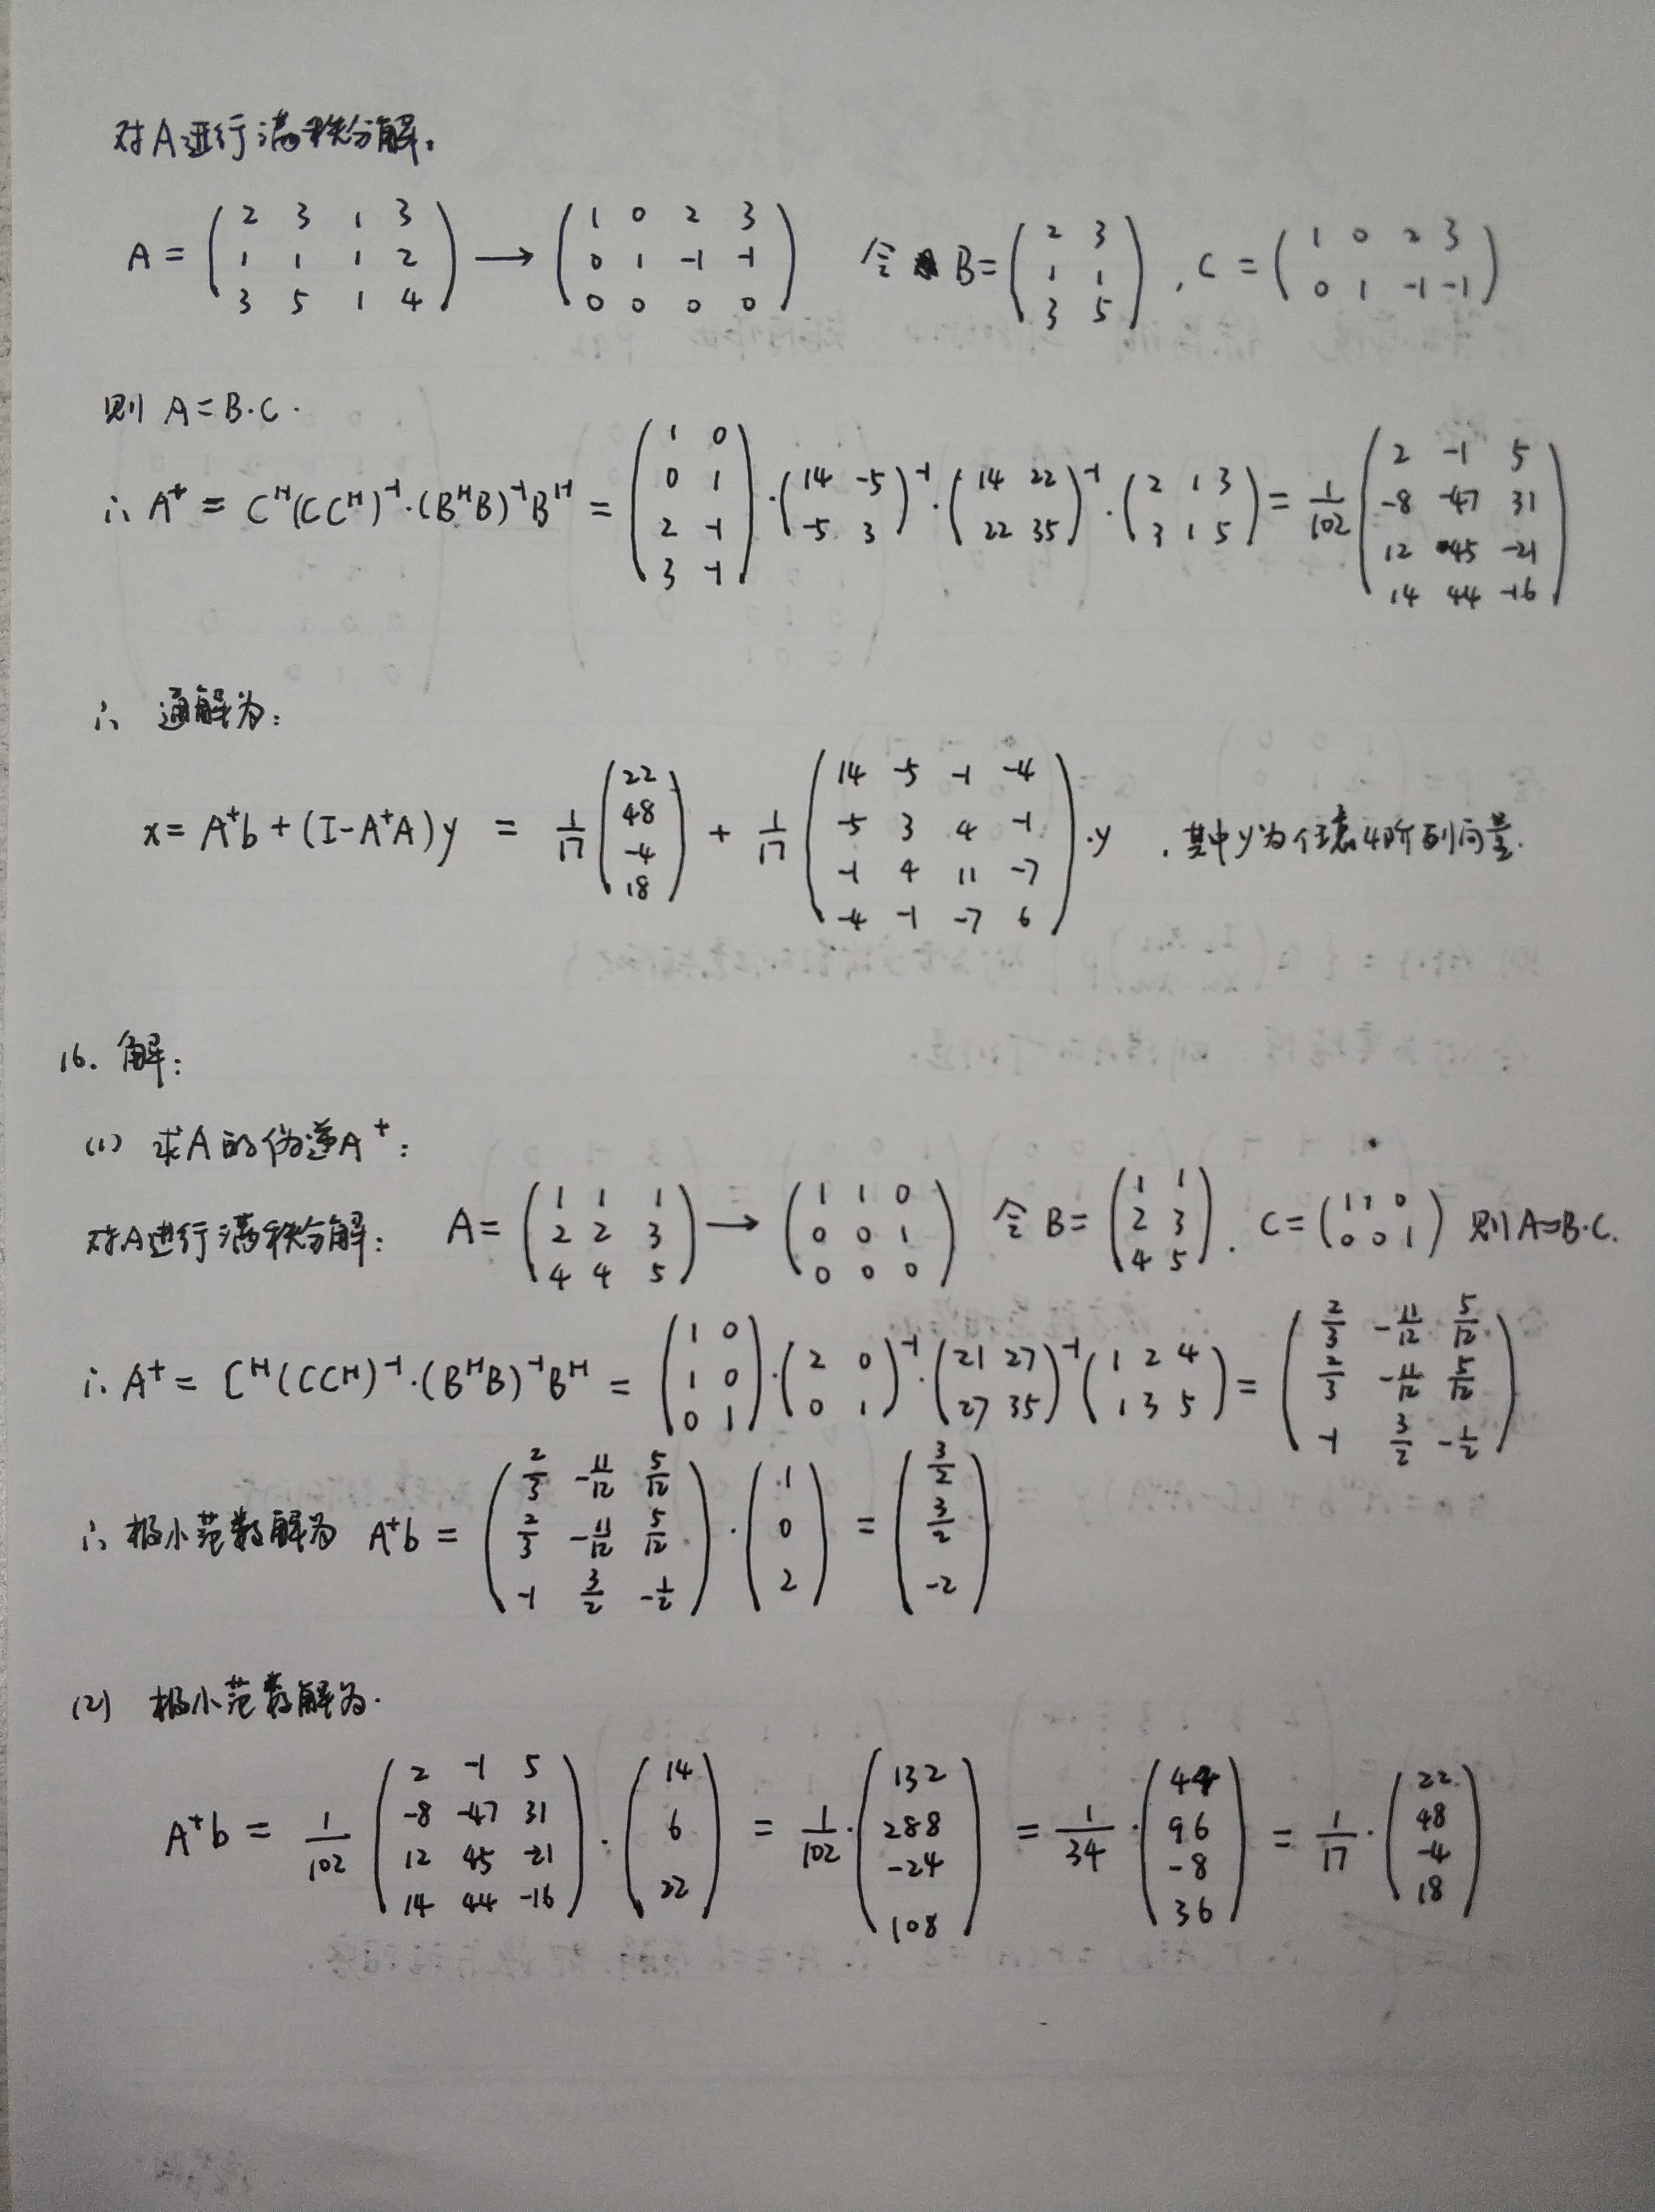 对A进行满秩分解.
A = ( 2 3 1 3 ; 1 1 1 2 ; 3 5 1 4 ) → ( 1 0 2 3 ; 0 1 -1 -1 ; 0 0 0 0 ) 令 B = ( 2 3 ; 1 1 ; 3 5 ), C = ( 1 0 2 3 ; 0 1 -1 -1 )
则 A = B·C.
∴ A⁺ = Cᴴ(CCᴴ)⁻¹·(BᴴB)⁻¹Bᴴ = ( 1 0 ; 0 1 ; 2 -1 ; 3 -1 )·( 14 -5 ; -5 3 )⁻¹·( 14 22 ; 22 35 )⁻¹·( 2 1 3 ; 3 1 5 ) = 1/102 ( 2 -1 5 ; -8 -47 31 ; 12 45 -21 ; 14 44 -16 )
∴ 通解为:
x = A⁺b + (I-A⁺A)y = 1/17 ( 22 ; 48 ; -4 ; 18 ) + 1/17 ( 14 -5 -1 -4 ; -5 3 4 -1 ; -1 4 11 -7 ; -4 -1 -7 6 )·y , 其中y为任意4阶列向量.
16. 解:
(1) 求A的伪逆A⁺:
对A进行满秩分解: A = ( 1 1 1 ; 2 2 3 ; 4 4 5 ) → ( 1 1 0 ; 0 0 1 ; 0 0 0 ) 令 B = ( 1 1 ; 2 3 ; 4 5 ), C = ( 1 1 0 ; 0 0 1 ) 则A=B·C.
∴ A⁺ = Cᴴ(CCᴴ)⁻¹·(BᴴB)⁻¹Bᴴ = ( 1 0 ; 1 0 ; 0 1 )·( 2 0 ; 0 1 )⁻¹·( 21 27 ; 27 35 )⁻¹( 1 2 4 ; 1 3 5 ) = ( 2/3 -11/12 5/12 ; 2/3 -11/12 5/12 ; -1 3/2 -1/2 )
∴ 极小范数解为 A⁺b = ( 2/3 -11/12 5/12 ; 2/3 -11/12 5/12 ; -1 3/2 -1/2 )·( 1 ; 0 ; 2 ) = ( 3/2 ; 3/2 ; -2 )
(2) 极小范数解为.
A⁺b = 1/102 ( 2 -1 5 ; -8 -47 31 ; 12 45 -21 ; 14 44 -16 )·( 14 ; 6 ; 22 ) = 1/102·( 132 ; 288 ; -24 ; 108 ) = 1/34·( 44 ; 96 ; -8 ; 36 ) = 1/17·( 22 ; 48 ; -4 ; 18 )